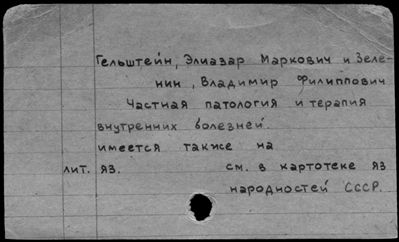 Гельштейн, Элиазар Маркович и Зеле-
нин, Владимир Филиппович
Частная патология и терапия
внутренних болезней.
имеется также на
лит. яз. см. в картотеке яз
народностей СССР.